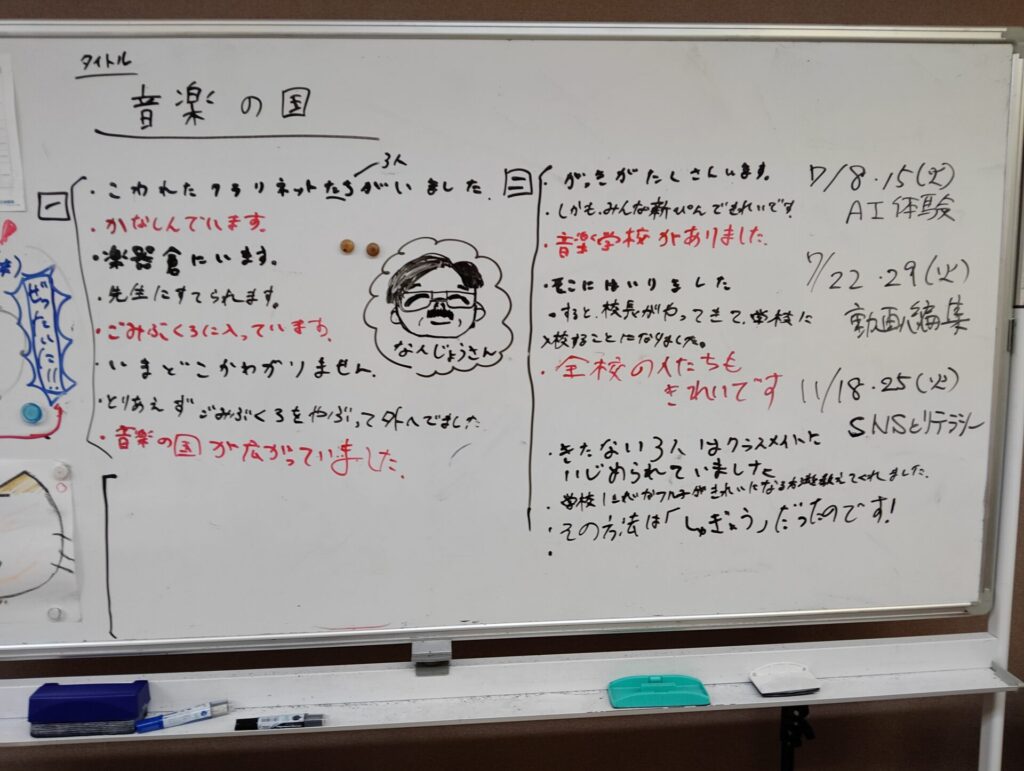 タイトル
音楽の国
一
3人
・こわれたクラリネットたちがいました。
・かなしんでいます。
・楽器倉にいます。
・先生にすてられます。
・ごみぶくろに入っています。
・いまどこかわかりません。
・とりあえずごみぶくろをやぶって外へでました
・音楽の国が広がっていました。
なんじょうさん
ぜったいに!!!
二
・がっきがたくさんいます。
・しかも、みんな新ぴんできれいです。
・音楽学校がありました。
・そこにはいりました
・すると、校長がやってきて、学校に
入校することになりました。
・全校の人たちも
きれいです
・きたない3人はクラスメイトに
いじめられていました
・学校1 フルートがきれいになる方法を教えてくれました。
・その方法は「しゅぎょう」だったのです!
7/8・15(火)
AI体験
7/22・29(火)
動画編集
11/18・25(火)
SNSとリテラシー